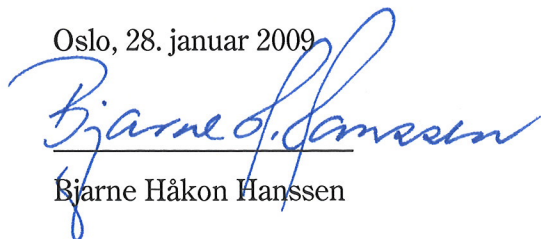 Oslo, 28. januar 2009
Bjarne H. Hanssen
Bjarne Håkon Hanssen